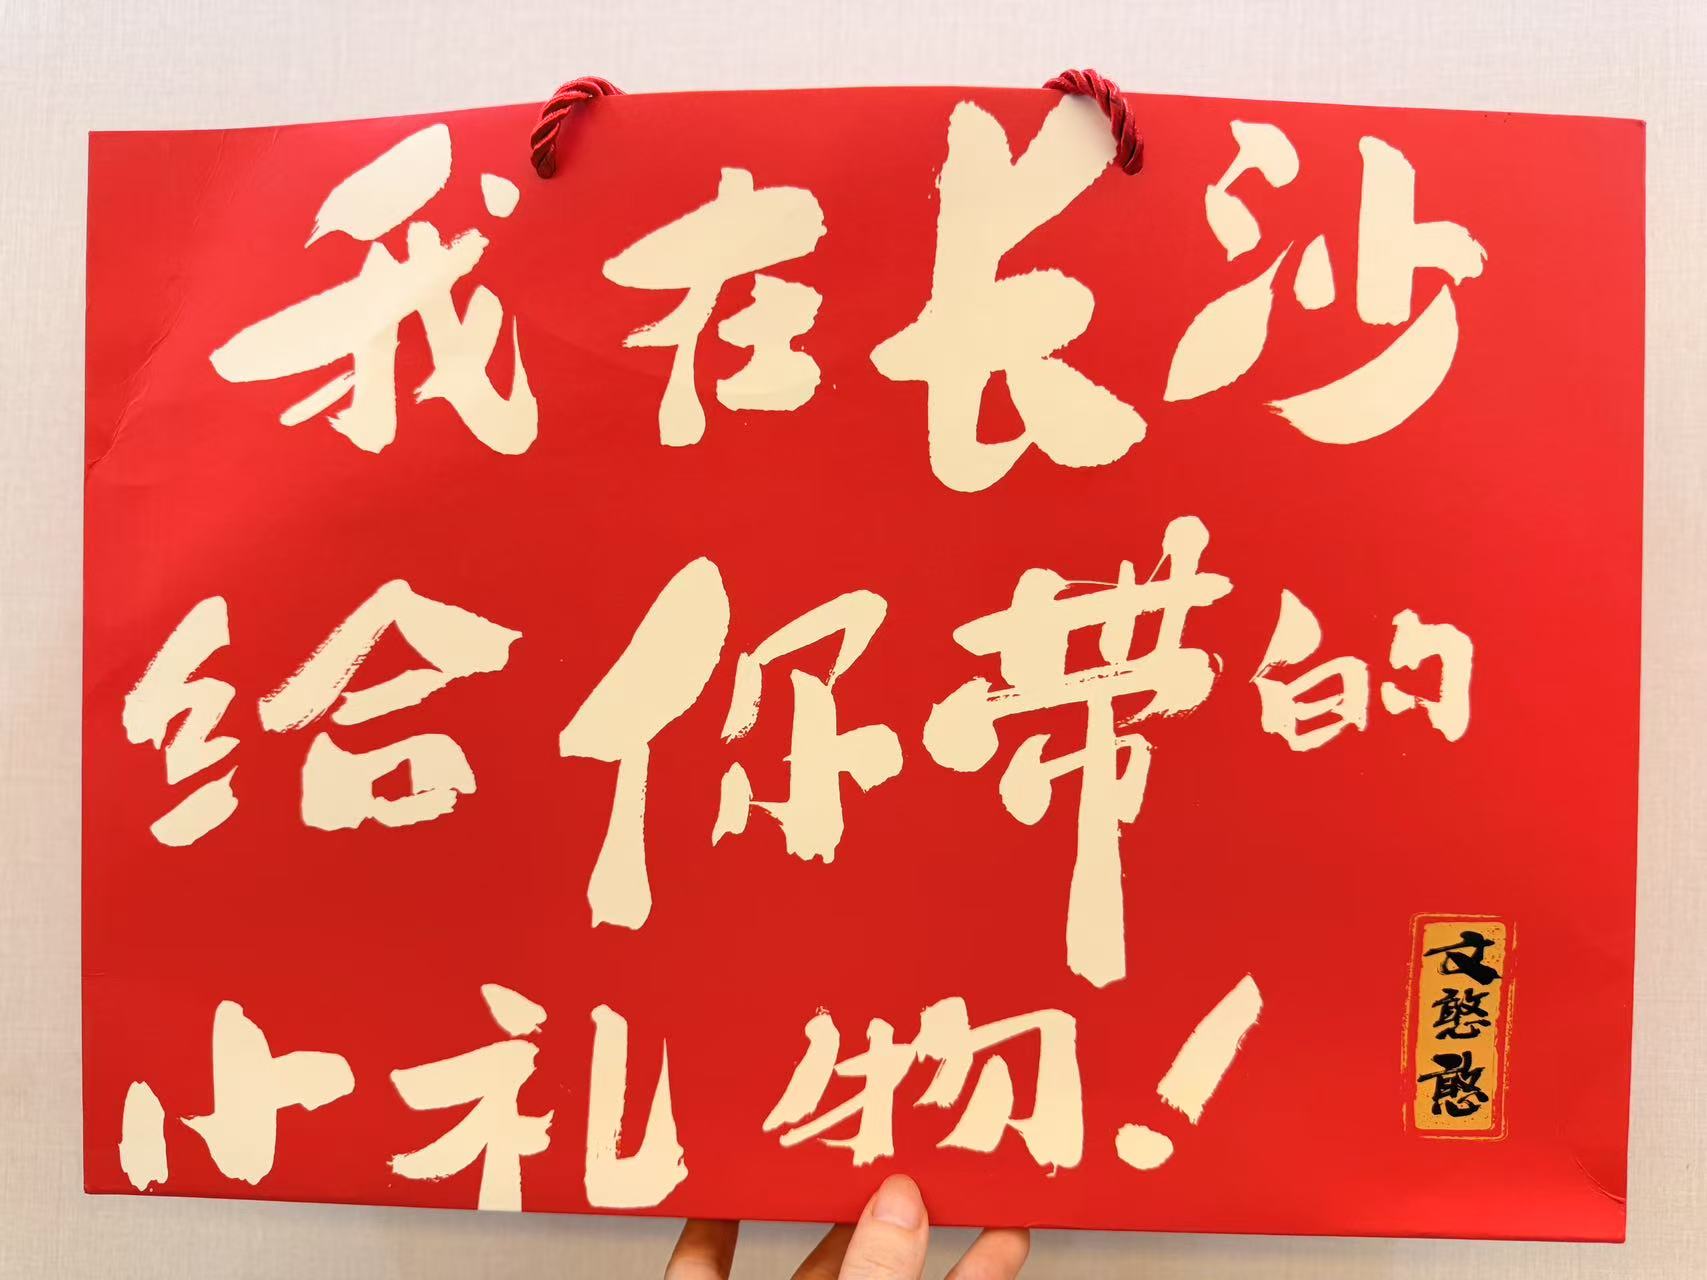 我在长沙
给你带的
小礼物！
文憨憨